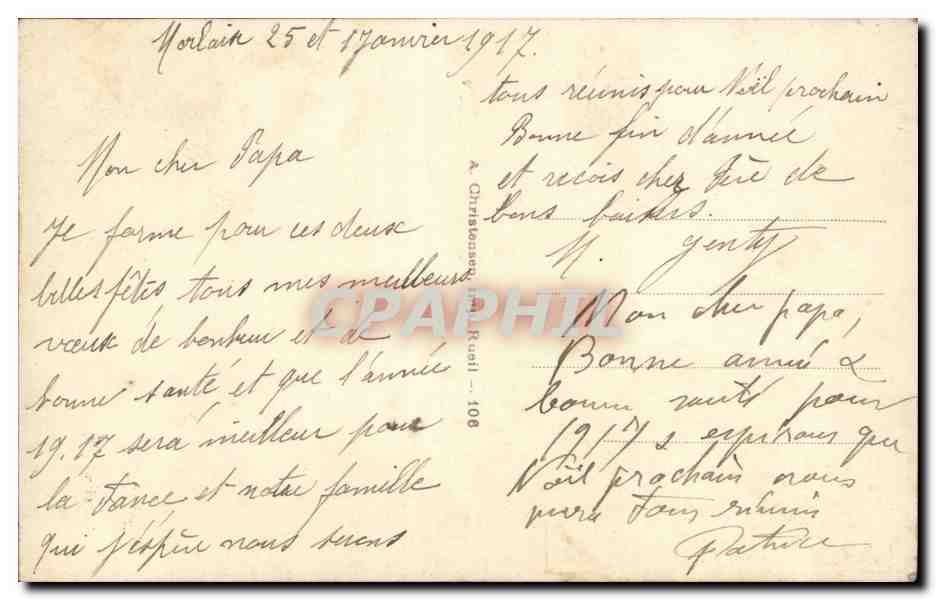 Morlaix 25 et 1 Janvier 1917.
Mon cher Papa
Je forme pour ces deux
belles fêtes tous mes meilleurs
vœux de bonheur et de
bonne santé et que l'année
19.17 sera meilleur pour
la France et notre famille
qui j'éspère nous serons
tous réunis pour Noël prochain
Bonne fin d'année
et recois cher Père de
bons baisers.
M. Genty
Mon cher papa,
Bonne année &
bonne santé pour
1917 espérons que
Noël prochain nous
verra tous réunis
A. Christensen, Imp. Rueil — 106
CPAPHIL